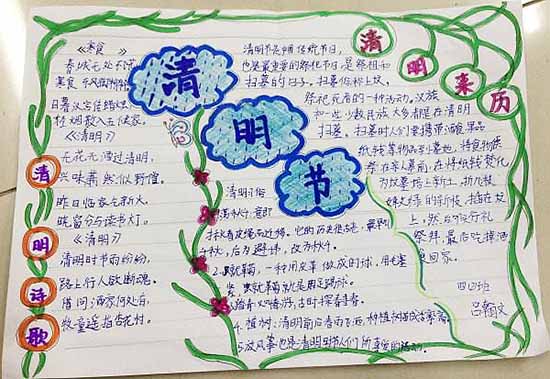 《寒食》
春城无处不飞
寒食东风御柳斜
日暮汉宫传蜡烛
轻烟散入五侯家
《清明》
无花无酒过清明,
兴味萧然似野僧。
昨日邻家乞新火,
晓窗分与读书灯。
《清明》
清明时节雨纷纷,
路上行人欲断魂。
借问酒家何处有,
牧童遥指杏花村。
清
明
诗
歌
清
明
节
清
明
来
历
清明节是中国传统节日,
也是最重要的祭祀节日是祭祖和
扫墓的日子。扫墓俗称上坟,
祭祀死者的一种活动。汉族
和一些少数民族大多都是在清明
扫墓。扫墓时人们要携带酒食果品
纸钱等物品到墓地,将食物供
祭在亲人墓前,在将纸钱焚化
为坟墓培上新土,折几枝
嫩绿的新枝,插在坟
上,然后叩头行礼
祭拜,最后吃掉酒
食回家。
清明习俗
1.荡秋千,意即
千秋,后为避讳,改为秋千。
2.蹴鞠,一种用皮革做成的球,用毛塞
紧,蹴鞠就是用足踢球。
3.踏青又叫春游,古时探春寻春。
4.植树:清明前后春雨飞洒,种植树苗成活率高
5.放风筝也是清明时节人们所喜爱的活动。
四(2)班